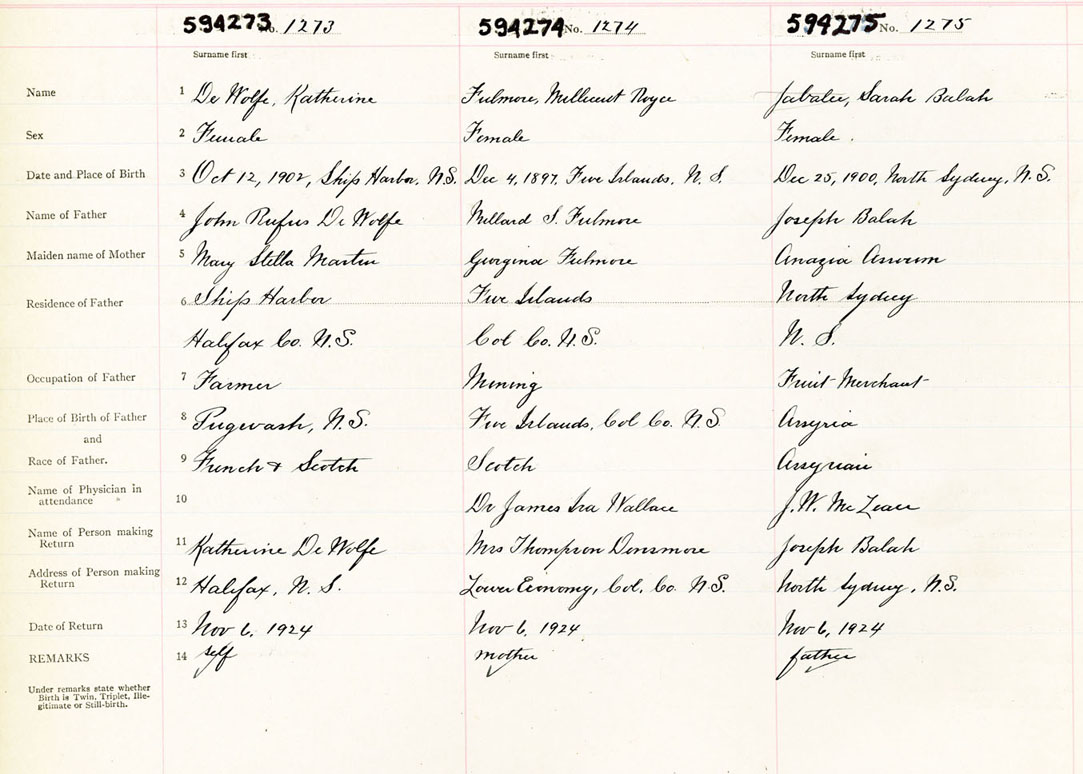 594273 No. 1273 594274 No. 1274 594275 No. 1275
Surname first Surname first Surname first
Name 1 De Wolfe, Katherine Fulmore, Millicent Royce Jabalee, Sarah Balah
Sex 2 Female Female Female
Date and Place of Birth 3 Oct 12, 1902, Ship Harbor, N.S. Dec 4, 1897, Five Islands, N. S. Dec 25, 1900, North Sydney, N.S.
Name of Father 4 John Rufus De Wolfe Willard S. Fulmore Joseph Balah
Maiden name of Mother 5 Mary Stella Martin Georgina Fulmore
Residence of Father 6 Ship Harbor Five Islands North Sydney
Halifax Co. N.S. Col Co. N.S. N. S.
Occupation of Father 7 Farmer Mining Fruit Merchant
Place of Birth of Father 8 Pugwash, N.S. Five Islands, Col Co. N.S. Assyria
and
Race of Father. 9 French & Scotch Scotch Assyrian
Name of Physician in
attendance 10 Dr James Ira Wallace J. W. McLean
Name of Person making
Return 11 Katherine De Wolfe Mrs Thompson Densmore Joseph Balah
Address of Person making
Return 12 Halifax, N. S. Lower Economy, Col. Co. N.S. North Sydney, N.S.
Date of Return 13 Nov 6, 1924 Nov 6, 1924 Nov 6, 1924
REMARKS 14 self mother father
Under remarks state whether
Birth is Twin, Triplet, Ille-
gitimate or Still-birth.